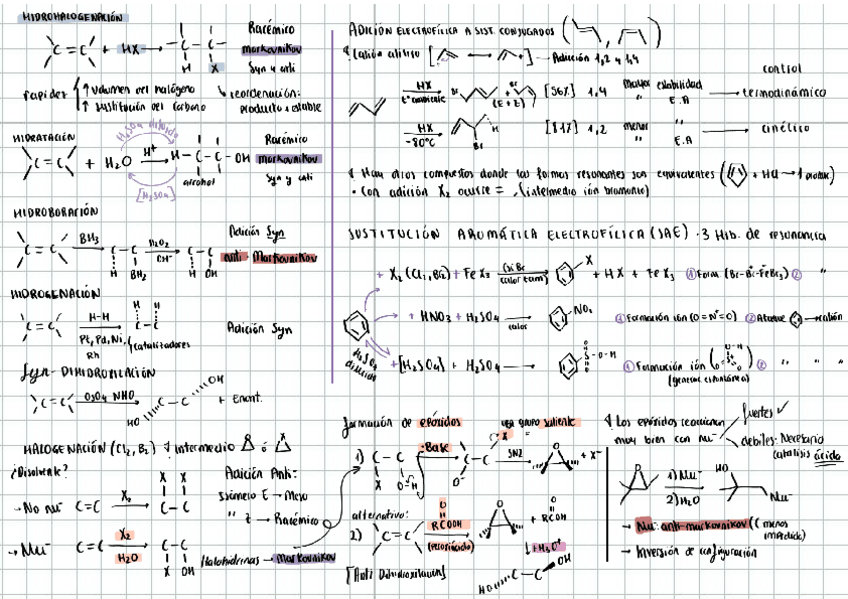 HIDROHALOGENACIÓN
C=C + HX → -C-C-
H X
Racémico
Markovnikov
Syn y anti
rapidez
↑ volumen del halógeno
↑ sustitución del carbono
↳ reordenación:
producto + estable
HIDRATACIÓN
H₂SO₄ diluido
C=C + H₂O H⁺ → H-C-C-OH
alcohol
[H₂SO₄]
Racémico
Markovnikov
Syn y anti
HIDROBORACIÓN
C=C BH₃ → C-C H₂O₂ OH⁻ → C-C
H BH₂ H OH
Adición Syn
anti-Markovnikov
HIDROGENACIÓN
H H
C=C H-H → C-C
Pt, Pd, Ni, (catalizadores
Rh
Adición Syn
Syn-DIHIDROXILACIÓN
C=C OsO₄ NMO → C-C OH
HO
+ Enant.
HALOGENACIÓN (Cl₂, Br₂) intermedio ó
¿Disolvente?
→ No nu⁻ C=C X₂ → C-C
X X
Adición Anti:
Isómero E → Meso
" Z → Racémico
→ Nu⁻ C=C X₂ H₂O → C-C
X OH
Halohidrinas → Markovnikov
ADICIÓN ELECTROFÍLICA A SIST. CONJUGADOS
Catión alílico [ ↔ ] Adición 1,2 y 1,4
HX
tª ambiente
Br Br
(E + Z)
[56%] 1,4
mayor estabilidad
" E.A
control
termodinámico
HX
-80°C
H
Br
[81%] 1,2
menor "
" E.A
cinético
Hay otros compuestos donde las formas resonantes son equivalentes ( + HCl → 1 produc)
• Con adición X₂ ocurre = (intermedio ión bromonio)
SUSTITUCIÓN AROMÁTICA ELECTROFÍLICA (SAE) · 3 Hib. de resonancia
+ X₂ (Cl₂, Br₂) + FeX₃ (si Br calor tam) → X + HX + FeX₃ ① Form. (Br-Br-FeBr₃) ② "
+ HNO₃ + H₂SO₄ calor → NO₂ ① Formación ión (O=N⁺=O) ② Ataque → catión
H₂SO₄ diluido
+ [H₂SO₄] + H₂SO₄ → S-O-H ① Formación ión ② " "
formación de epóxidos
una grupo saliente
1) C-C :Base → C-C SN2 → + X⁻
X O-H
X
O⁻
alternativo:
2) C=C RCOOH (peroxiácido) → + RCOH
O
↓ + H₃O⁺
[Anti Dihidroxilación]
HO C-C OH
Los epóxidos reaccionan
muy bien con nu⁻
fuertes ✓
débiles: Necesario
catálisis ácida
O 1) Nu⁻ 2) H₂O → HO Nu
→ Nu⁻ anti-markovnikov (C menos
impedido)
→ Inversión de configuración